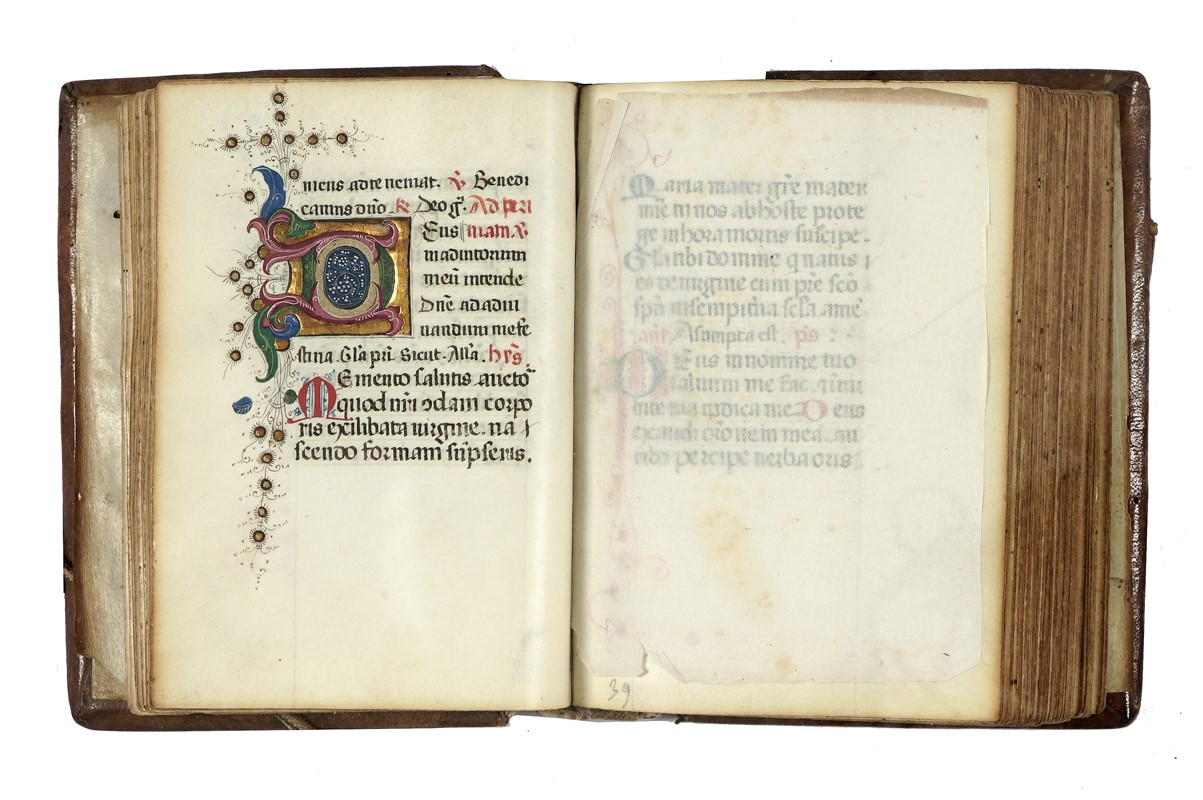 mens ad te veniat. ℣. Benedi
camus dño ℟. Deo gr̃. Ad pri
Deus mam ℣.
in adiutorium
meũ intende
Dñe ad adiu
uandum me fe
stina. Gl̃a pr̃i. Sicut. All̃a. hỹs.
Memento salutis aucto
quod nr̃i ↄdam corpo
ris ex illibata uirgine. na
scendo formam sũpseris.
Maria mater gr̃e mater
mĩe tu nos ab hoste prote
ge in hora mortis suscipe.
Gl̃a tibi domine qui natus
es de uirgine cum pr̃e sc̃o
sp̃u in sempit̃na sc̃la amẽ
ant̃ Assumpta est. p̃s
Deus in nomine tuo
saluum me fac. ⁊ in uir
tute tua iudica me. Deus
exaudi or̃onem meã. au
ribus percipe uerba oris
39